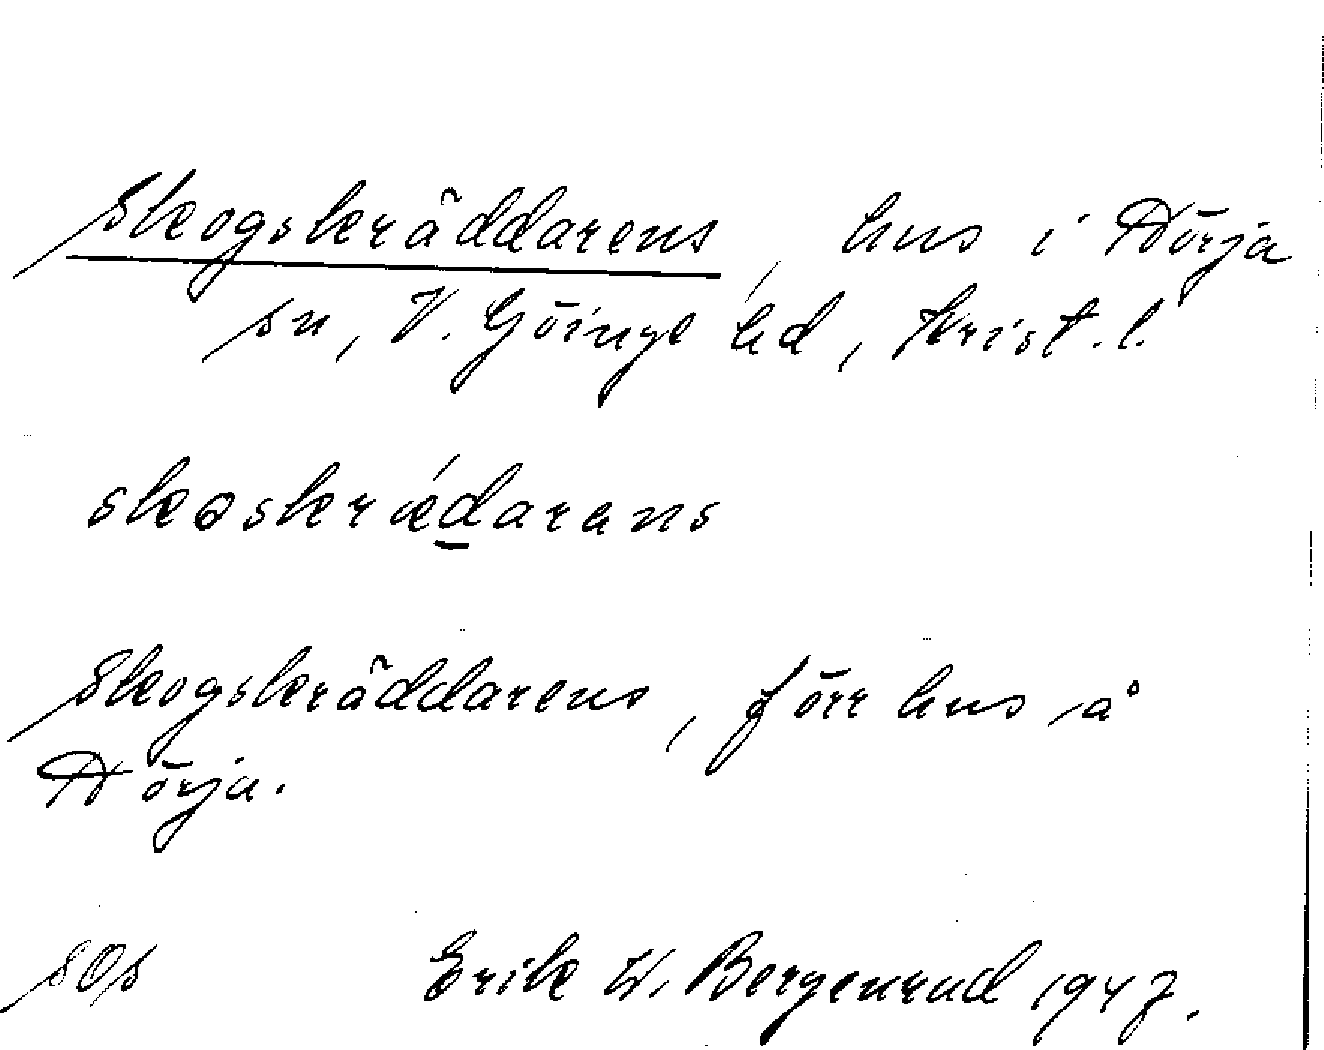 Skogskräddarens, hus i Nörja
sn, V. Göinge hd, Krist. l.
skoskrǽdarans
Skogskräddarens, förr hus å
Nörja.
SOs Erik W. Bergenrud 1947.